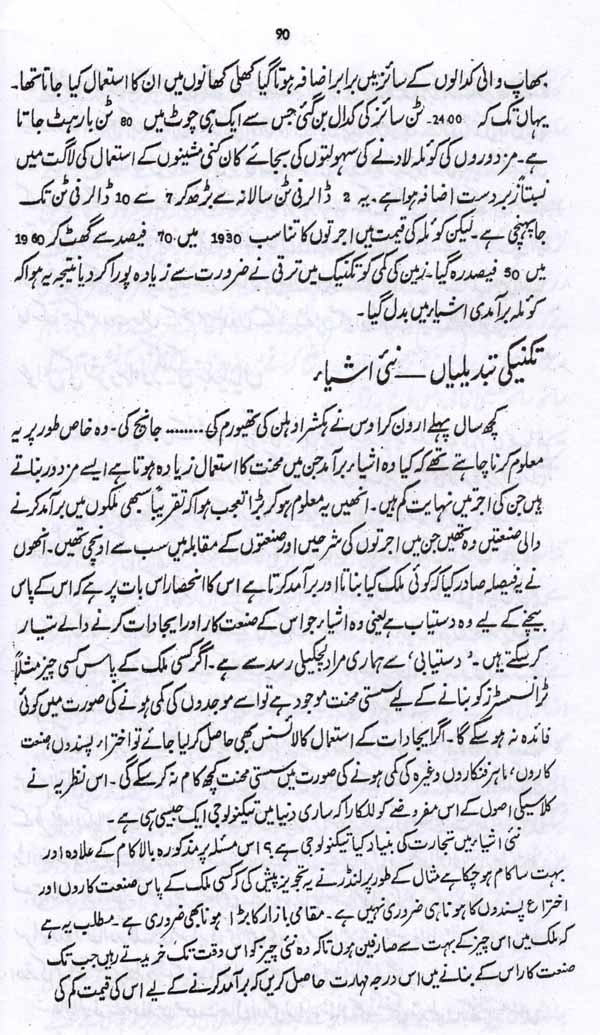 90
بھاپ والی کدالوں کے سائز میں برابر اضافہ ہوتا گیا کھلی کھانوں میں ان کا استعمال کیا جاتا تھا۔
یہاں تک کہ 2400۔ ٹن سائز کی کدال بن گئی جس سے ایک ہی چوٹ میں 80 ٹن بار ہٹ جاتا
ہے۔ مزدوروں کی کوئلہ لادنے کی سہولتوں کی بجائے کان کنی مشینوں کے استعمال کی لاگت میں
نسبتاً زبردست اضافہ ہوا ہے۔ یہ 2 ڈالر فی ٹن سالانہ سے بڑھ کر 7 سے 10 ڈالر فی ٹن تک
جا پہنچی ہے۔ لیکن کوئلہ کی قیمت میں اجرتوں کا تناسب 1930 میں 70۔ فیصد سے گھٹ کر 1960
میں 50 فیصد رہ گیا۔ زمین کی کمی کو تکنیک میں ترقی نے ضرورت سے زیادہ پورا کر دیا نتیجہ یہ ہوا کہ
کوئلہ برآمدی اشیار میں بدل گیا۔
تکنیکی تبدیلیاں — نئی اشیار
کچھ سال پہلے ارون کراوس نے ہکشر اوہلن کی تھیورم کی ........ جانچ کی۔ وہ خاص طور پر یہ
معلوم کرنا چاہتے تھے کہ کیا وہ اشیار برآمد جن میں محنت کا استعمال زیادہ ہوتا ہے ایسے مزدور بناتے
ہیں جن کی اجرتیں نہایت کم ہیں۔ انھیں یہ معلوم ہو کر بڑا تعجب ہوا کہ تقریباً سبھی ملکوں میں برآمد کرنے
والی صنعتیں وہ تھیں جن میں اجرتوں کی شرحیں اور صنعتوں کے مقابلہ میں سب سے اونچی تھیں۔ انھوں
نے یہ فیصلہ صادر کیا کہ کوئی ملک کیا بناتا اور برآمد کرتا ہے اس کا انحصار اس بات پر ہے کہ اس کے پاس
بیچنے کے لیے وہ دستیاب ہے یعنی وہ اشیار جو اس کے صنعت کار اور ایجادات کرنے والے تیار
کر سکتے ہیں۔ 'دستیابی' سے ہماری مراد لچکیلی رسد سے ہے۔ اگر کسی ملک کے پاس کسی چیز مثلاً
ٹرانسسٹرز کو بنانے کے لیے سستی محنت موجود ہے تو اسے موجدوں کی کمی ہونے کی صورت میں کوئی
فائدہ نہ ہو سکے گا۔ اگر ایجادات کے استعمال کا لائسنس بھی حاصل کر لیا جائے تو اختراع پسندوں صنعت
کاروں، ماہر فنکاروں وغیرہ کی کمی ہونے کی صورت میں سستی محنت کچھ کام نہ کر سکے گی۔ اس نظریہ نے
کلاسیکی اصول کے اس مفروضے کو للکارا کہ ساری دنیا میں تیکنولوجی ایک جیسی ہی ہے۔
نئی اشیار میں تجارت کی بنیاد کیا تیکنولوجی ہے؟ اس مسئلہ پر مذکورہ بالا کام کے علاوہ اور
بہت سا کام ہو چکا ہے مثال کے طور پر لنڈر نے یہ تجویز پیش کی کہ کسی ملک کے پاس صنعت کاروں اور
اختراع پسندوں کا ہونا ہی ضروری نہیں ہے۔ مقامی بازار کا بڑا ہونا بھی ضروری ہے۔ مطلب یہ ہے
کہ ملک میں اس چیز کے بہت سے صارفین ہوں تاکہ وہ نئی چیز کو اس وقت تک خریدتے رہیں جب تک
صنعت کار اس کے بنانے میں اس درجہ مہارت حاصل کریں کہ برآمد کرنے کے لیے اس کی قیمت کم کی